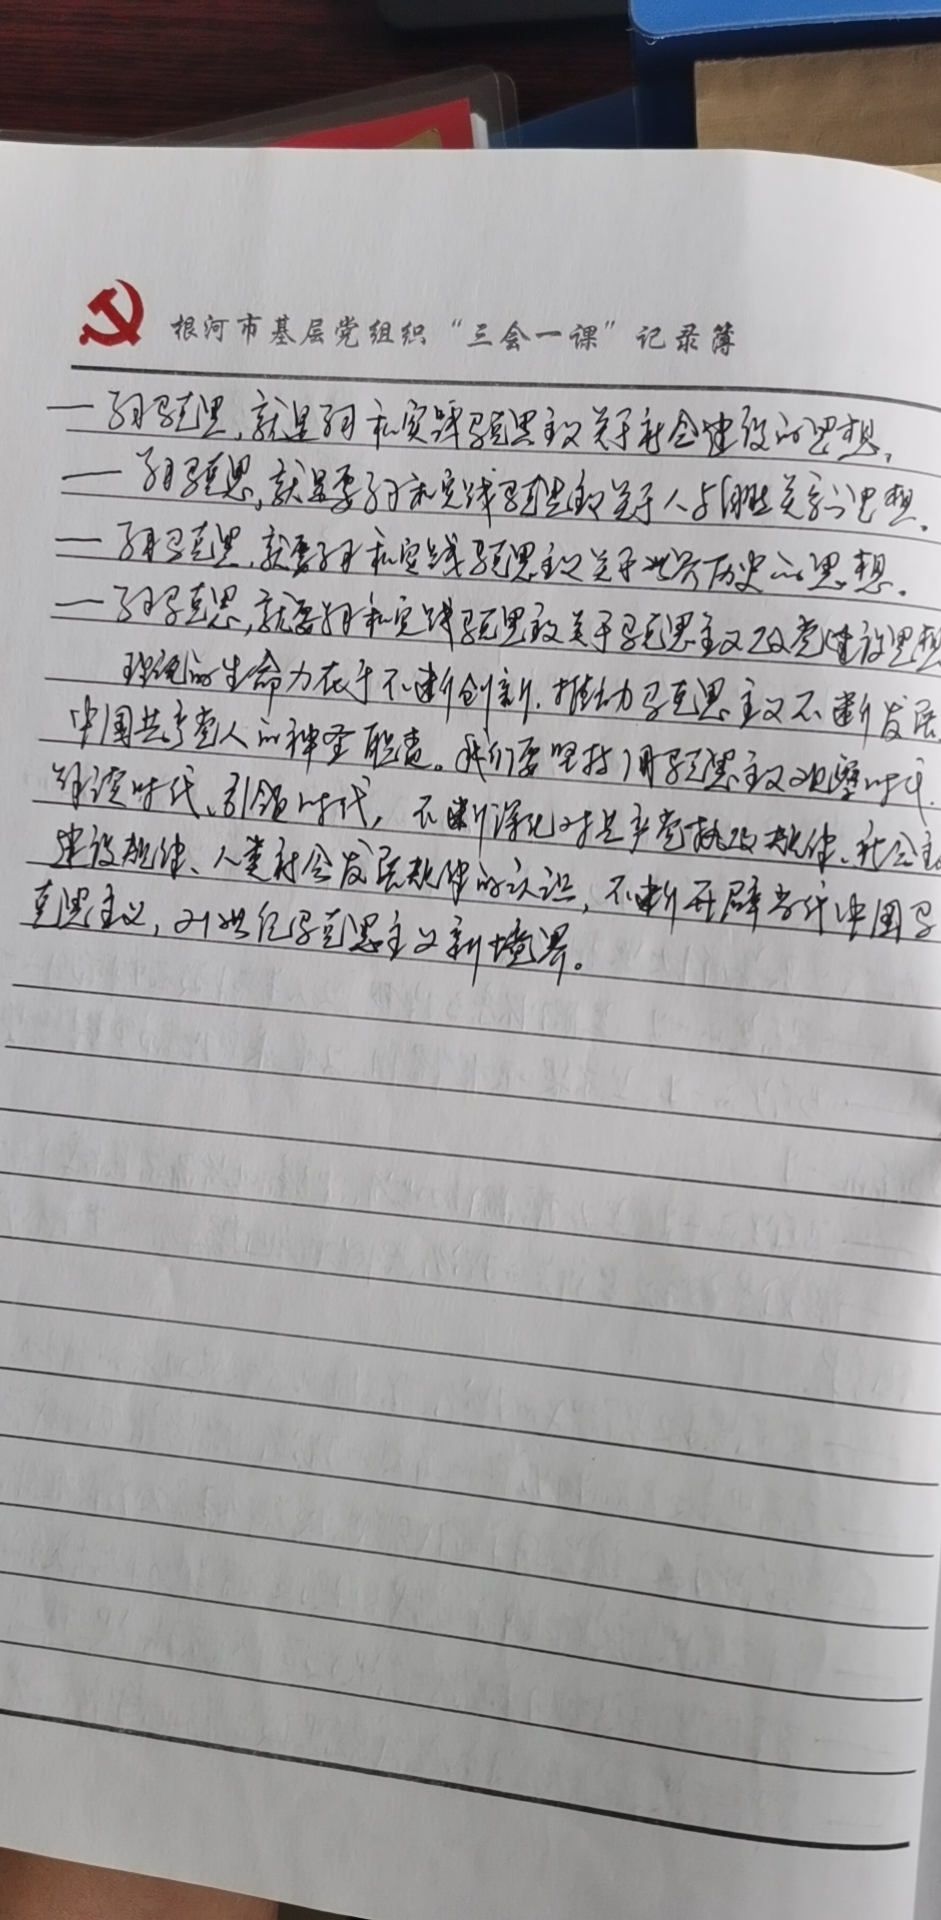 根河市基层党组织“三会一课”记录簿
—学习马克思,就是学习和实践马克思主义关于社会建设的思想,
—学习马克思,就是要学习和实践马克思主义关于人与自然关系的思想.
—学习马克思,就要学习和实践马克思主义关于世界历史的思想.
—学习马克思,就要学习和实践马克思主义关于马克思主义政党建设思想
理论的生命力在于不断创新.推动马克思主义不断发展
中国共产党人的神圣职责。我们要坚持用马克思主义观察时代.
解读时代、引领时代,不断深化对共产党执政规律、社会主
建设规律、人类社会发展规律的认识,不断开辟当代中国马
克思主义,21世纪马克思主义新境界。